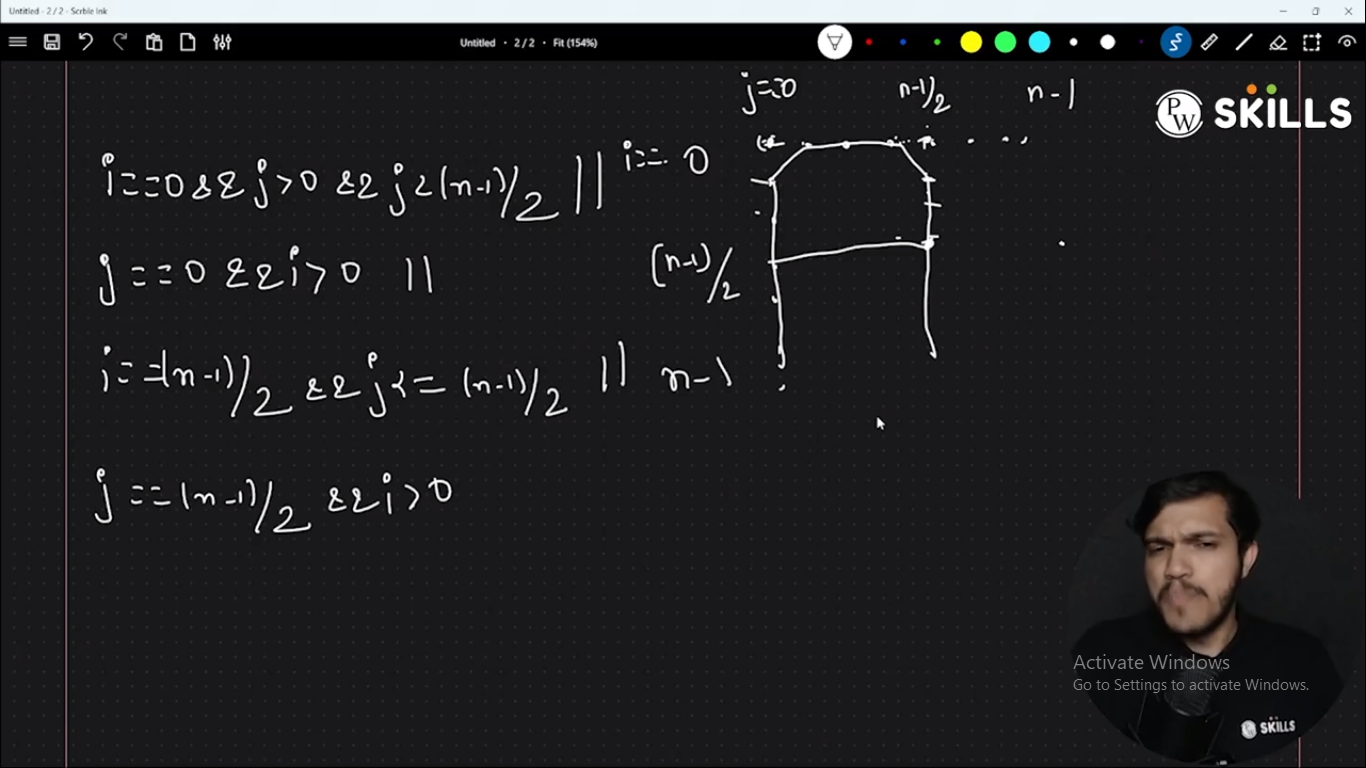 Untitled - 2 / 2 - Scrble Ink
Untitled • 2 / 2 • Fit (154%)
j==0 n-1/2 n-1
PW SKILLS
i==0 && j>0 && j<(n-1)/2 || i== 0
j==0 && i>0 || (n-1)/2
i==(n-1)/2 && j<=(n-1)/2 || n-1
j==(n-1)/2 && i>0
Activate Windows
Go to Settings to activate Windows.
SKILLS